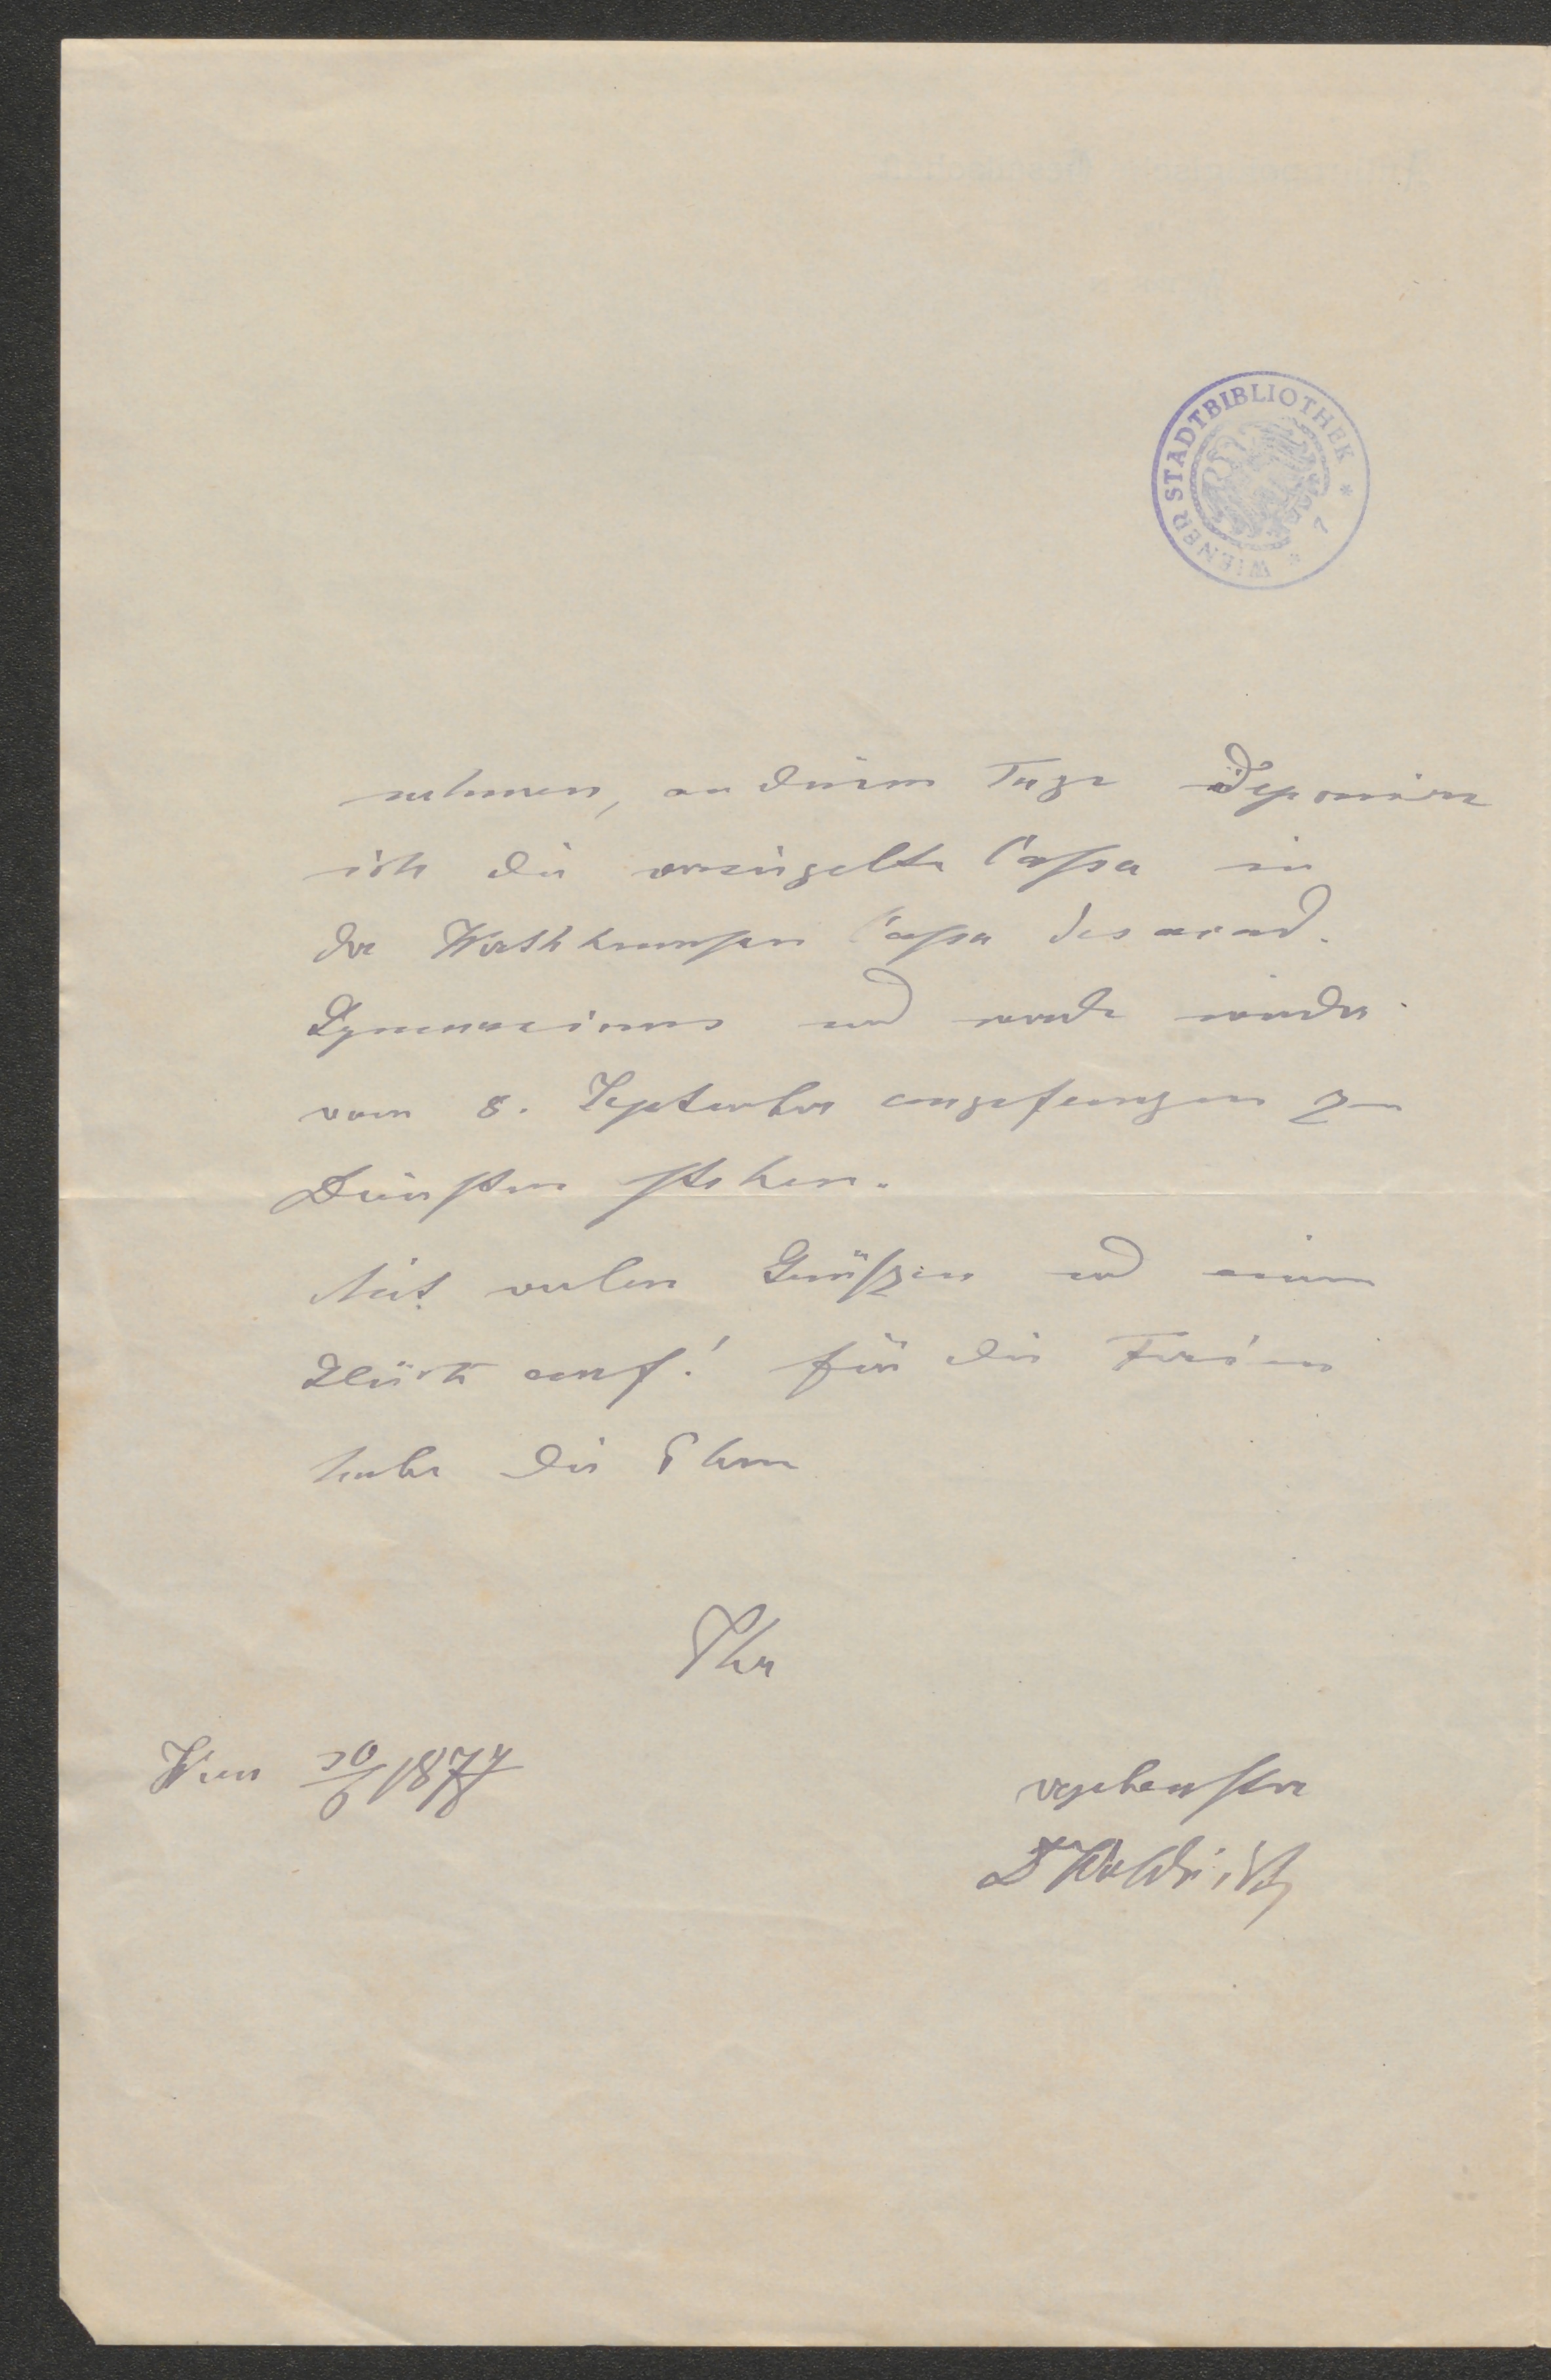 WIENER STADTBIBLIOTHEK * 7 *
nehmen, an diesem Tage deponire
ich die versiegelte Cassa in
der Werthheimschen Cassa des acad.
Gymnasiums und werde wieder
vom 8. September angefangen zu
Diensten stehen.
Mit vielen Grüßen und einem
Glück auf! für die Ferien
habe die Ehre
Ihr
Wien 30/6 1874
ergebenster